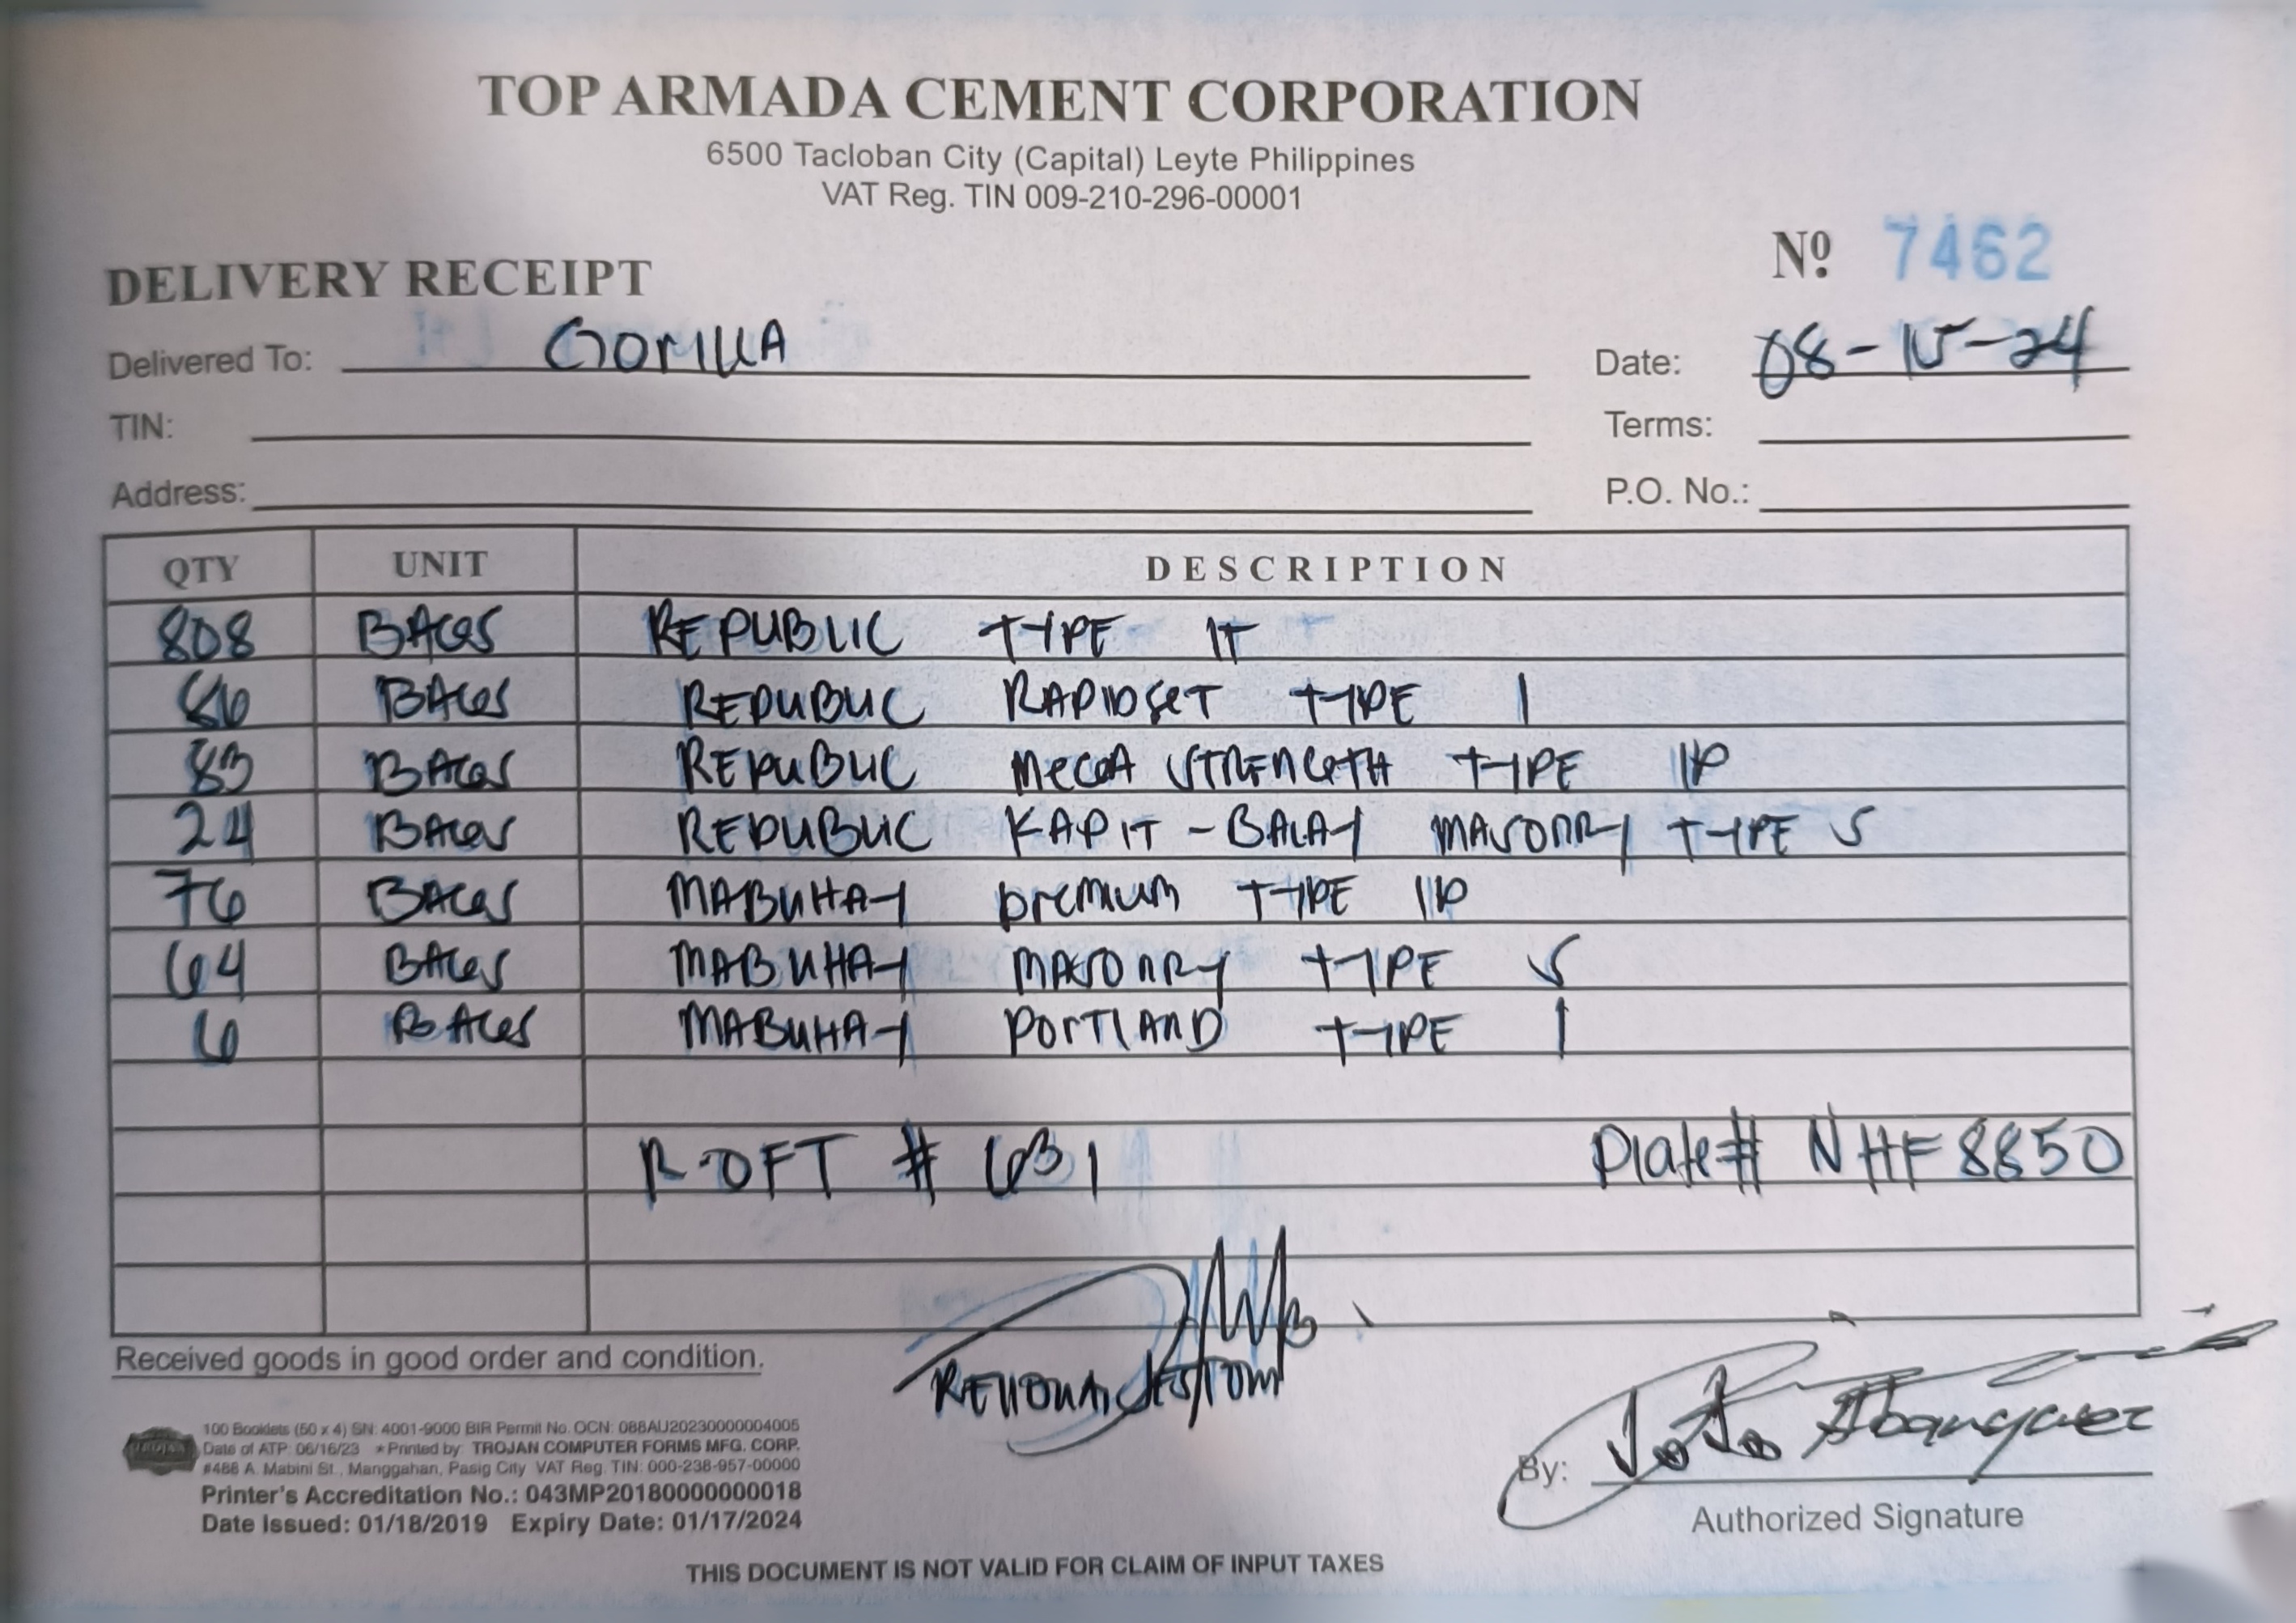 TOP ARMADA CEMENT CORPORATION
6500 Tacloban City (Capital) Leyte Philippines
VAT Reg. TIN 009-210-296-00001
DELIVERY RECEIPT Nº 7462
Delivered To: GORILLA Date: 08-15-24
TIN: Terms:
Address: P.O. No.:
QTY UNIT DESCRIPTION
808 BAGS REPUBLIC TYPE 1T
86 BAGS REPUBLIC RAPIDSET TYPE 1
83 BAGS REPUBLIC MEGA STRENGTH TYPE 1P
24 BAGS REPUBLIC KAPIT-BALAY MASONRY TYPE S
76 BAGS MABUHAY PREMIUM TYPE 1P
64 BAGS MABUHAY MASONRY TYPE S
6 BAGS MABUHAY PORTLAND TYPE 1
R-OFT # 631 Plate# NHF 8850
Received goods in good order and condition.
100 Booklets (50 x 4) SN: 4001-9000 BIR Permit No. OCN: 088AU20230000004005
Date of ATP: 06/16/23 * Printed by: TROJAN COMPUTER FORMS MFG. CORP.
#488 A. Mabini St., Manggahan, Pasig City VAT Reg. TIN: 000-238-957-00000
Printer's Accreditation No.: 043MP20180000000018
Date Issued: 01/18/2019 Expiry Date: 01/17/2024
By: JoJo Abanquez
Authorized Signature
THIS DOCUMENT IS NOT VALID FOR CLAIM OF INPUT TAXES